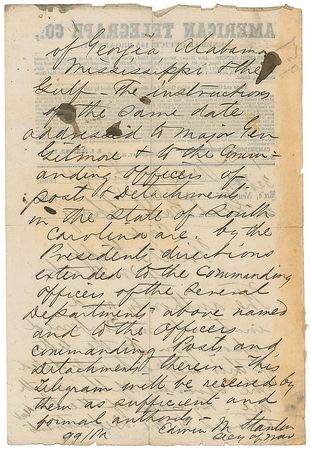 of Georgia Alabama
Mississippi & the
Gulf - The instructions
of the same date
addressed to Major Gen
Gilmore & to the Comm-
anding Officers of
posts & Detachments
in the State of South
Carolina are by the
President directions
extended to the Commanding
Officers of the Several
Departments above named
and to the Officers
Commanding Posts and
Detachments therein This
Telegram will be received by
them as sufficient and
formal authority -
Edwin M Stanton
Secy of War
AMERICAN TELEGRAPH CO.